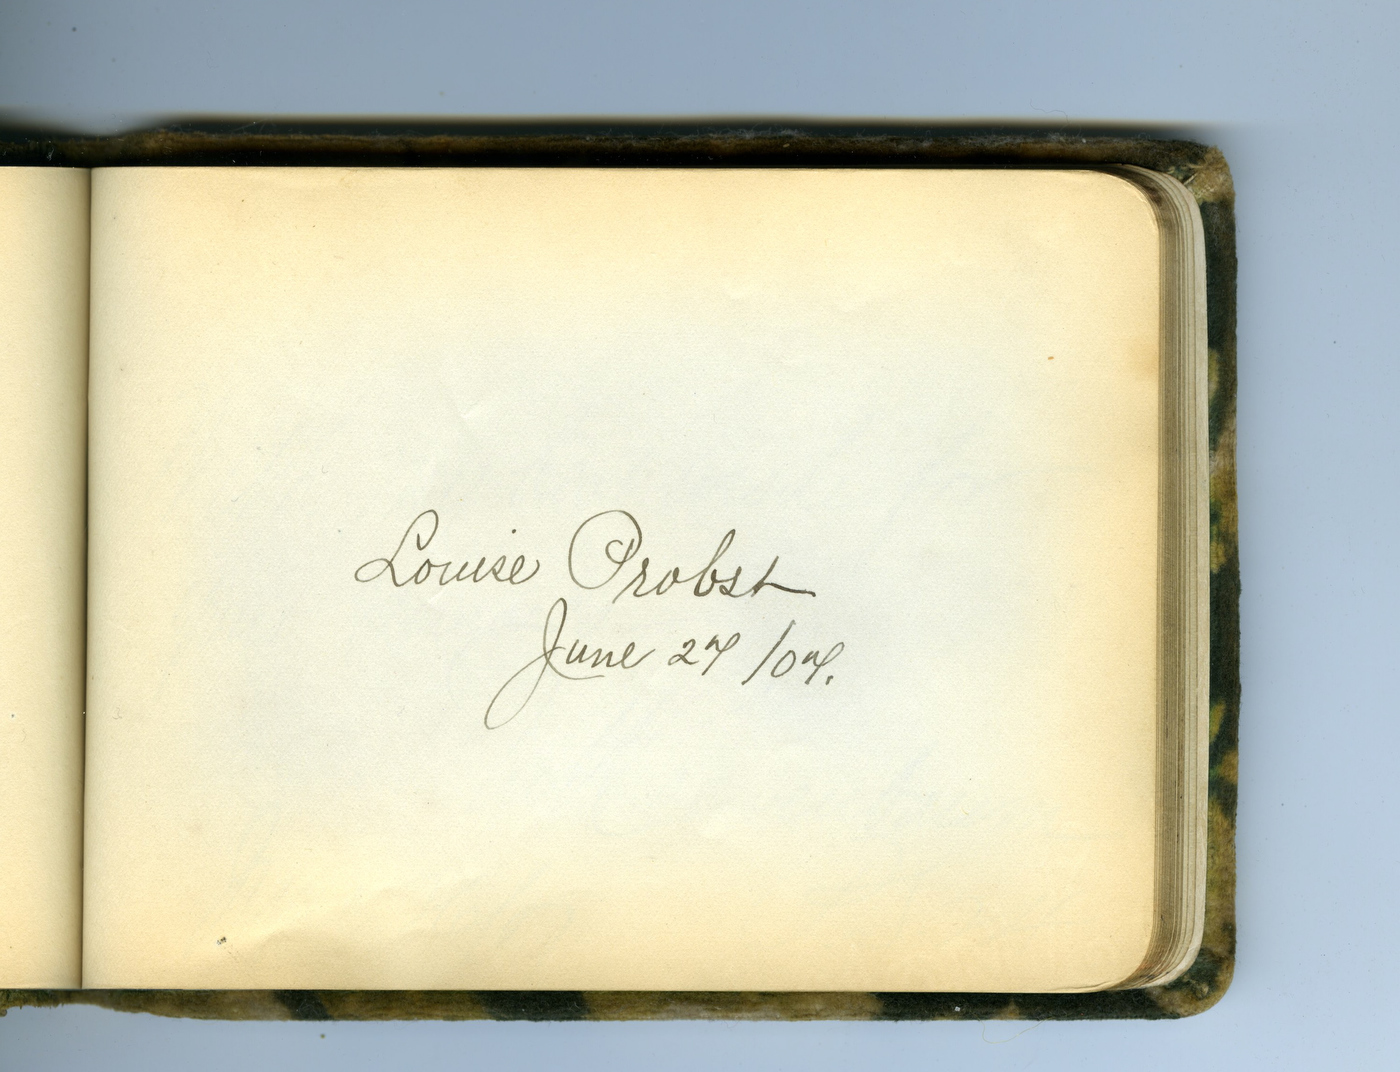 Louise Probst
June 27 /07.